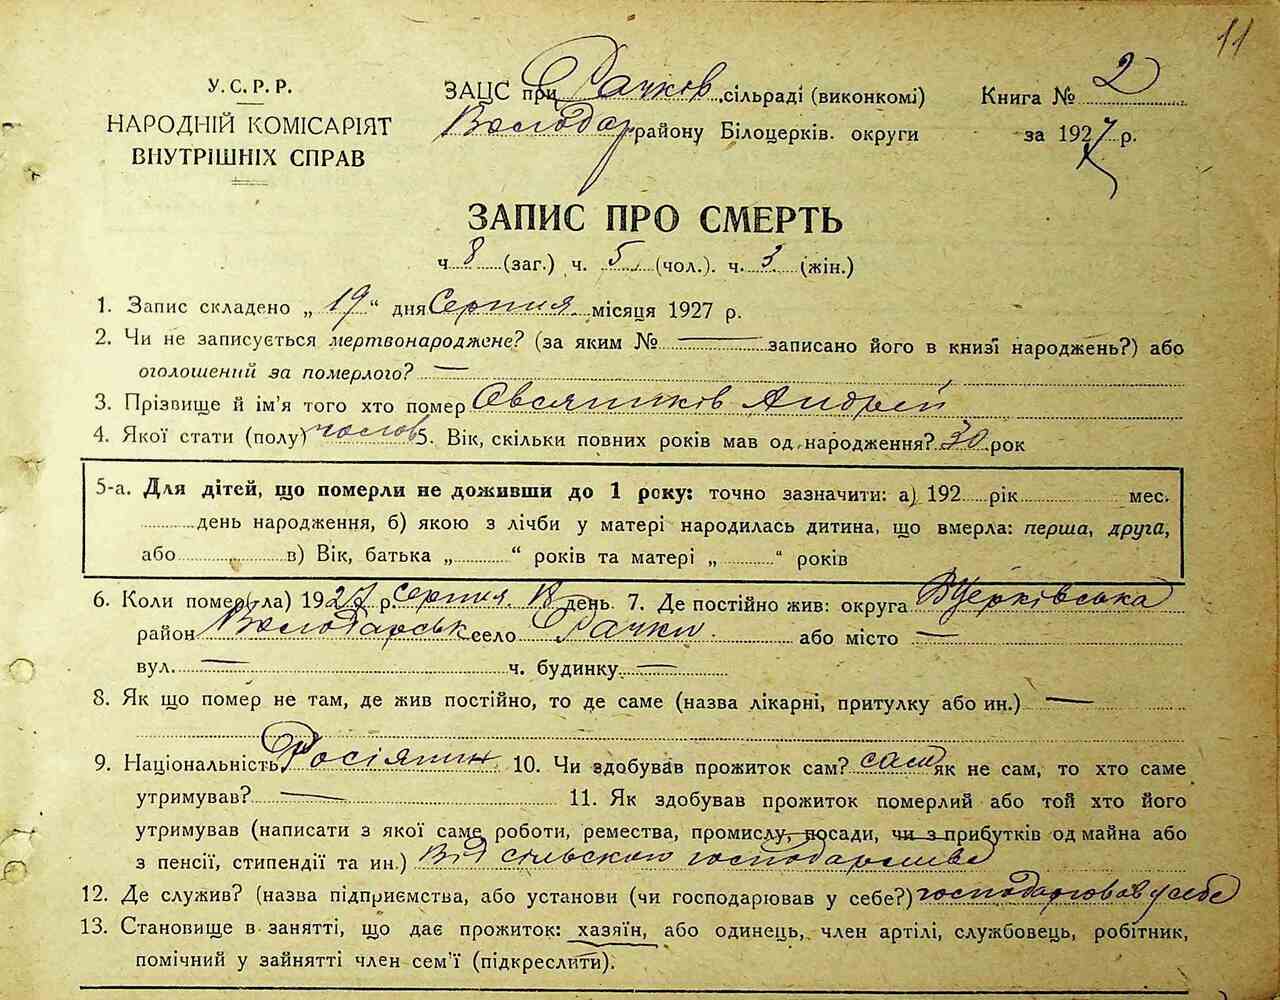 11
У.С.Р.Р.
НАРОДНІЙ КОМІСАРІЯТ
ВНУТРІШНІХ СПРАВ
ЗАЦС при Рачків. сільраді (виконкомі)
Володар району Білоцерків. округи
Книга № 2
за 1927 р.
ЗАПИС ПРО СМЕРТЬ
ч 8 (заг.) ч. 5 (чол.). ч. 3 (жін.)
1. Запис складено „ 19 “ дня Серпня місяця 1927 р.
2. Чи не записується мертвонароджене? (за яким № — записано його в книзі народжень?) або
оголошений за померлого? —
3. Прізвище й ім'я того хто помер Овсяників Андрей
4. Якої стати (полу) чолов 5. Вік, скільки повних років мав од народження? 30 рок
5-а. Для дітей, що померли не доживши до 1 року: точно зазначити: а) 192 рік мес.
день народження, б) якою з лічби у матері народилась дитина, що вмерла: перша, друга,
або в) Вік, батька „ “ років та матері „ “ років
6. Коли помер(ла) 1927 р. серпня 18 день 7. Де постійно жив: округа БЦерківська
район Володарськ село Рачки або місто —
вул. — ч. будинку —
8. Як що помер не там, де жив постійно, то де саме (назва лікарні, притулку або ин.) —
9. Національність Росіянин 10. Чи здобував прожиток сам? сам як не сам, то хто саме
утримував? — 11. Як здобував прожиток померлий або той хто його
утримував (написати з якої саме роботи, ремества, промислу, посади, чи з прибутків од майна або
з пенсії, стипендії та ин.) Від сільского господарства
12. Де служив? (назва підприємства, або установи (чи господарював у себе?) господарював у себе
13. Становище в занятті, що дає прожиток: хазяїн, або одинець, член артілі, службовець, робітник,
помічний у зайнятті член сем'ї (підкреслити).